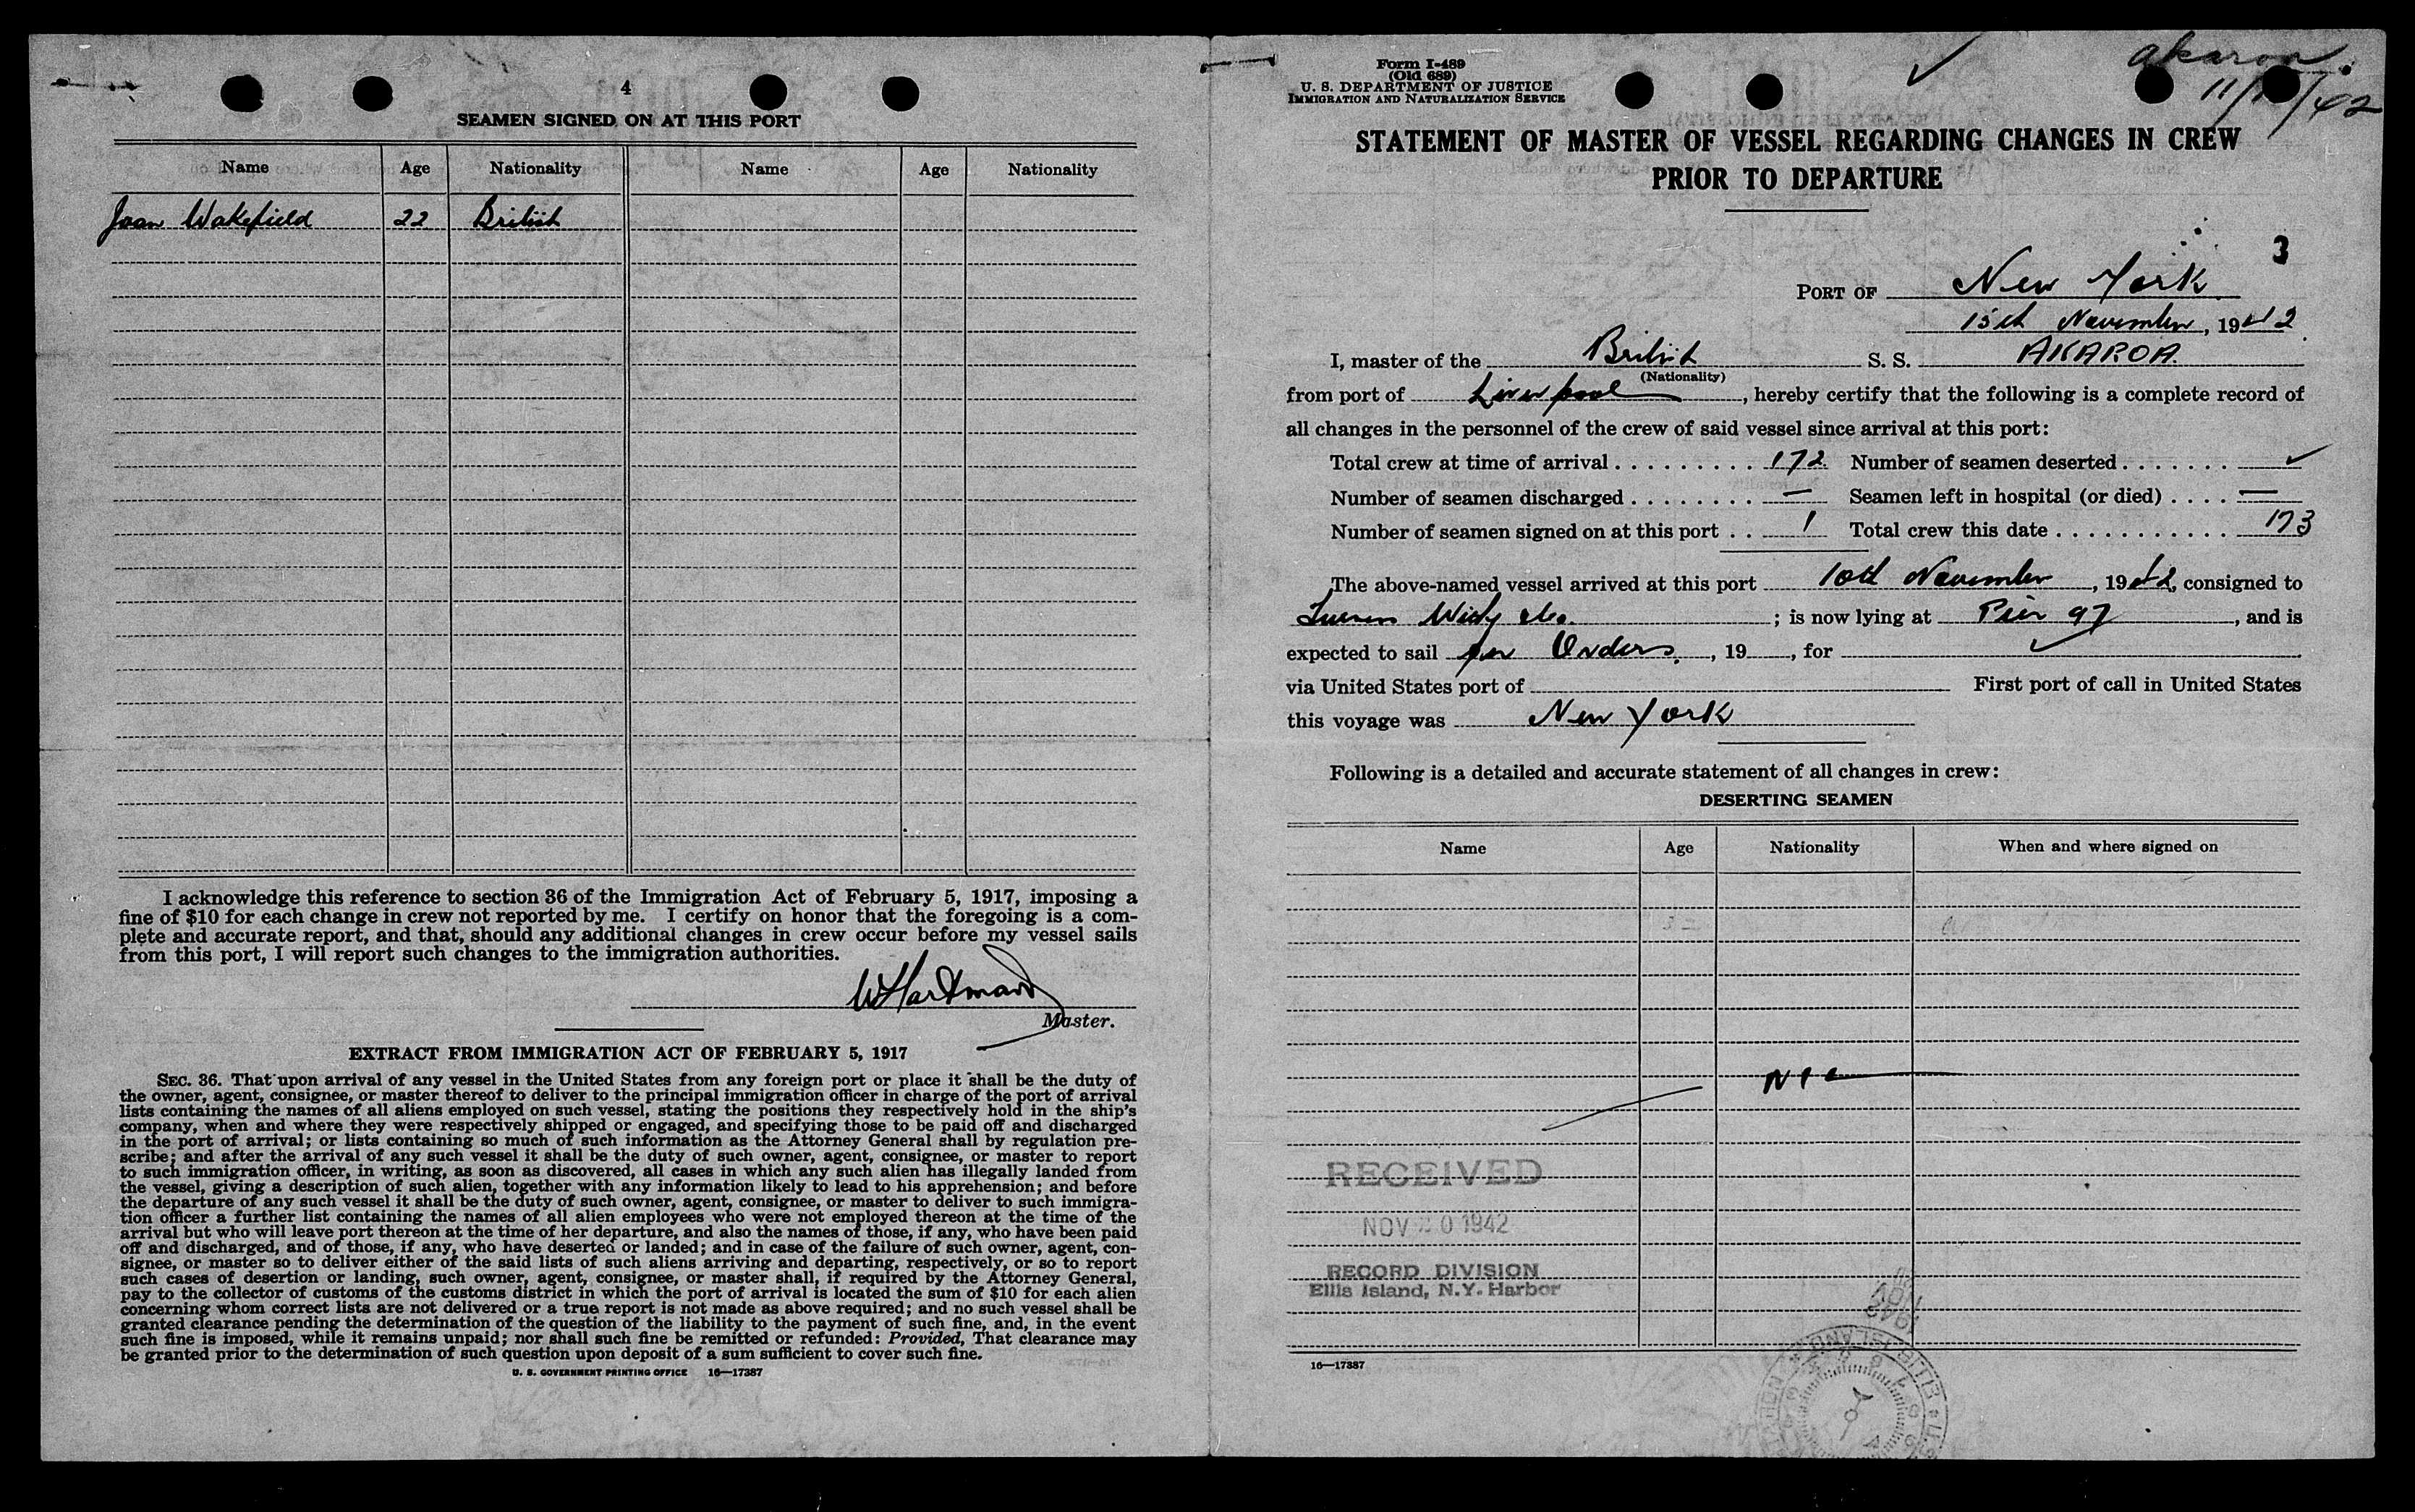 4
SEAMEN SIGNED ON AT THIS PORT
Name Age Nationality Name Age Nationality
Joan Wakefield 22 British
I acknowledge this reference to section 36 of the Immigration Act of February 5, 1917, imposing a
fine of $10 for each change in crew not reported by me. I certify on honor that the foregoing is a com-
plete and accurate report, and that, should any additional changes in crew occur before my vessel sails
from this port, I will report such changes to the immigration authorities.
WHartmann
Master.
EXTRACT FROM IMMIGRATION ACT OF FEBRUARY 5, 1917
SEC. 36. That upon arrival of any vessel in the United States from any foreign port or place it shall be the duty of
the owner, agent, consignee, or master thereof to deliver to the principal immigration officer in charge of the port of arrival
lists containing the names of all aliens employed on such vessel, stating the positions they respectively hold in the ship's
company, when and where they were respectively shipped or engaged, and specifying those to be paid off and discharged
in the port of arrival; or lists containing so much of such information as the Attorney General shall by regulation pre-
scribe; and after the arrival of any such vessel it shall be the duty of such owner, agent, consignee, or master to report
to such immigration officer, in writing, as soon as discovered, all cases in which any such alien has illegally landed from
the vessel, giving a description of such alien, together with any information likely to lead to his apprehension; and before
the departure of any such vessel it shall be the duty of such owner, agent, consignee, or master to deliver to such immigra-
tion officer a further list containing the names of all alien employees who were not employed thereon at the time of the
arrival but who will leave port thereon at the time of her departure, and also the names of those, if any, who have been paid
off and discharged, and of those, if any, who have deserted or landed; and in case of the failure of such owner, agent, con-
signee, or master so to deliver either of the said lists of such aliens arriving and departing, respectively, or so to report
such cases of desertion or landing, such owner, agent, consignee, or master shall, if required by the Attorney General,
pay to the collector of customs of the customs district in which the port of arrival is located the sum of $10 for each alien
concerning whom correct lists are not delivered or a true report is not made as above required; and no such vessel shall be
granted clearance pending the determination of the question of the liability to the payment of such fine, and, in the event
such fine is imposed, while it remains unpaid; nor shall such fine be remitted or refunded: Provided, That clearance may
be granted prior to the determination of such question upon deposit of a sum sufficient to cover such fine.
U. S. GOVERNMENT PRINTING OFFICE 16—17387
Form I-489
(Old 689)
U. S. DEPARTMENT OF JUSTICE
IMMIGRATION AND NATURALIZATION SERVICE
Akaroa
STATEMENT OF MASTER OF VESSEL REGARDING CHANGES IN CREW
PRIOR TO DEPARTURE
3
PORT OF New York
15th November, 1942
I, master of the British S. S. AKAROA
(Nationality)
from port of Liverpool, hereby certify that the following is a complete record of
all changes in the personnel of the crew of said vessel since arrival at this port:
Total crew at time of arrival 172 Number of seamen deserted ✓
Number of seamen discharged — Seamen left in hospital (or died) —
Number of seamen signed on at this port 1 Total crew this date 173
The above-named vessel arrived at this port 10th November, 1942, consigned to
; is now lying at Pier 97, and is
expected to sail per Orders, 19 , for
via United States port of First port of call in United States
this voyage was New York
Following is a detailed and accurate statement of all changes in crew:
DESERTING SEAMEN
Name Age Nationality When and where signed on
RECEIVED
NOV 20 1942
RECORD DIVISION
Ellis Island, N.Y. Harbor
NOV
1942
ELLIS ISLAND
16—17387